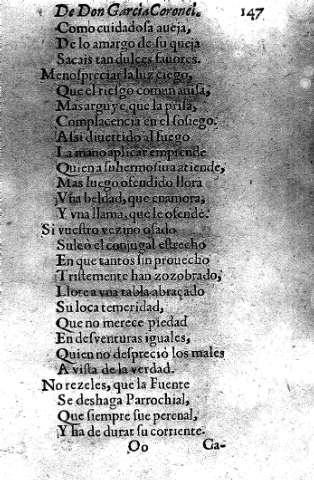 De Don Garcia Coronel. 147
Como cuidadosa aueja,
De lo amargo de su queja
Sacais tan dulces fauores.
Menospreciar la luz ciego,
Que el riesgo comun auisa,
Mas arguye que la prisa,
Complacencia en el sosiego.
Assi diuertido al fuego
La mano aplicar emprende
Quien a su hermosura atiende,
Mas luego ofendido llora
Vna beldad, que enamora,
Y vna llama, que le ofende.
Si vuestro vezino osado
Sulcò el conjugal estrecho
En que tantos sin prouecho
Tristemente han zozobrado,
Llore a vna tabla abraçado
Su loca temeridad,
Que no merece piedad
En desventuras iguales,
Quien no despreciò los males
A vista de la verdad.
No rezeles, que la Fuente
Se deshaga Parrochial,
Que siempre fue perenal,
Y ha de durar su corriente.
Oo Ga-